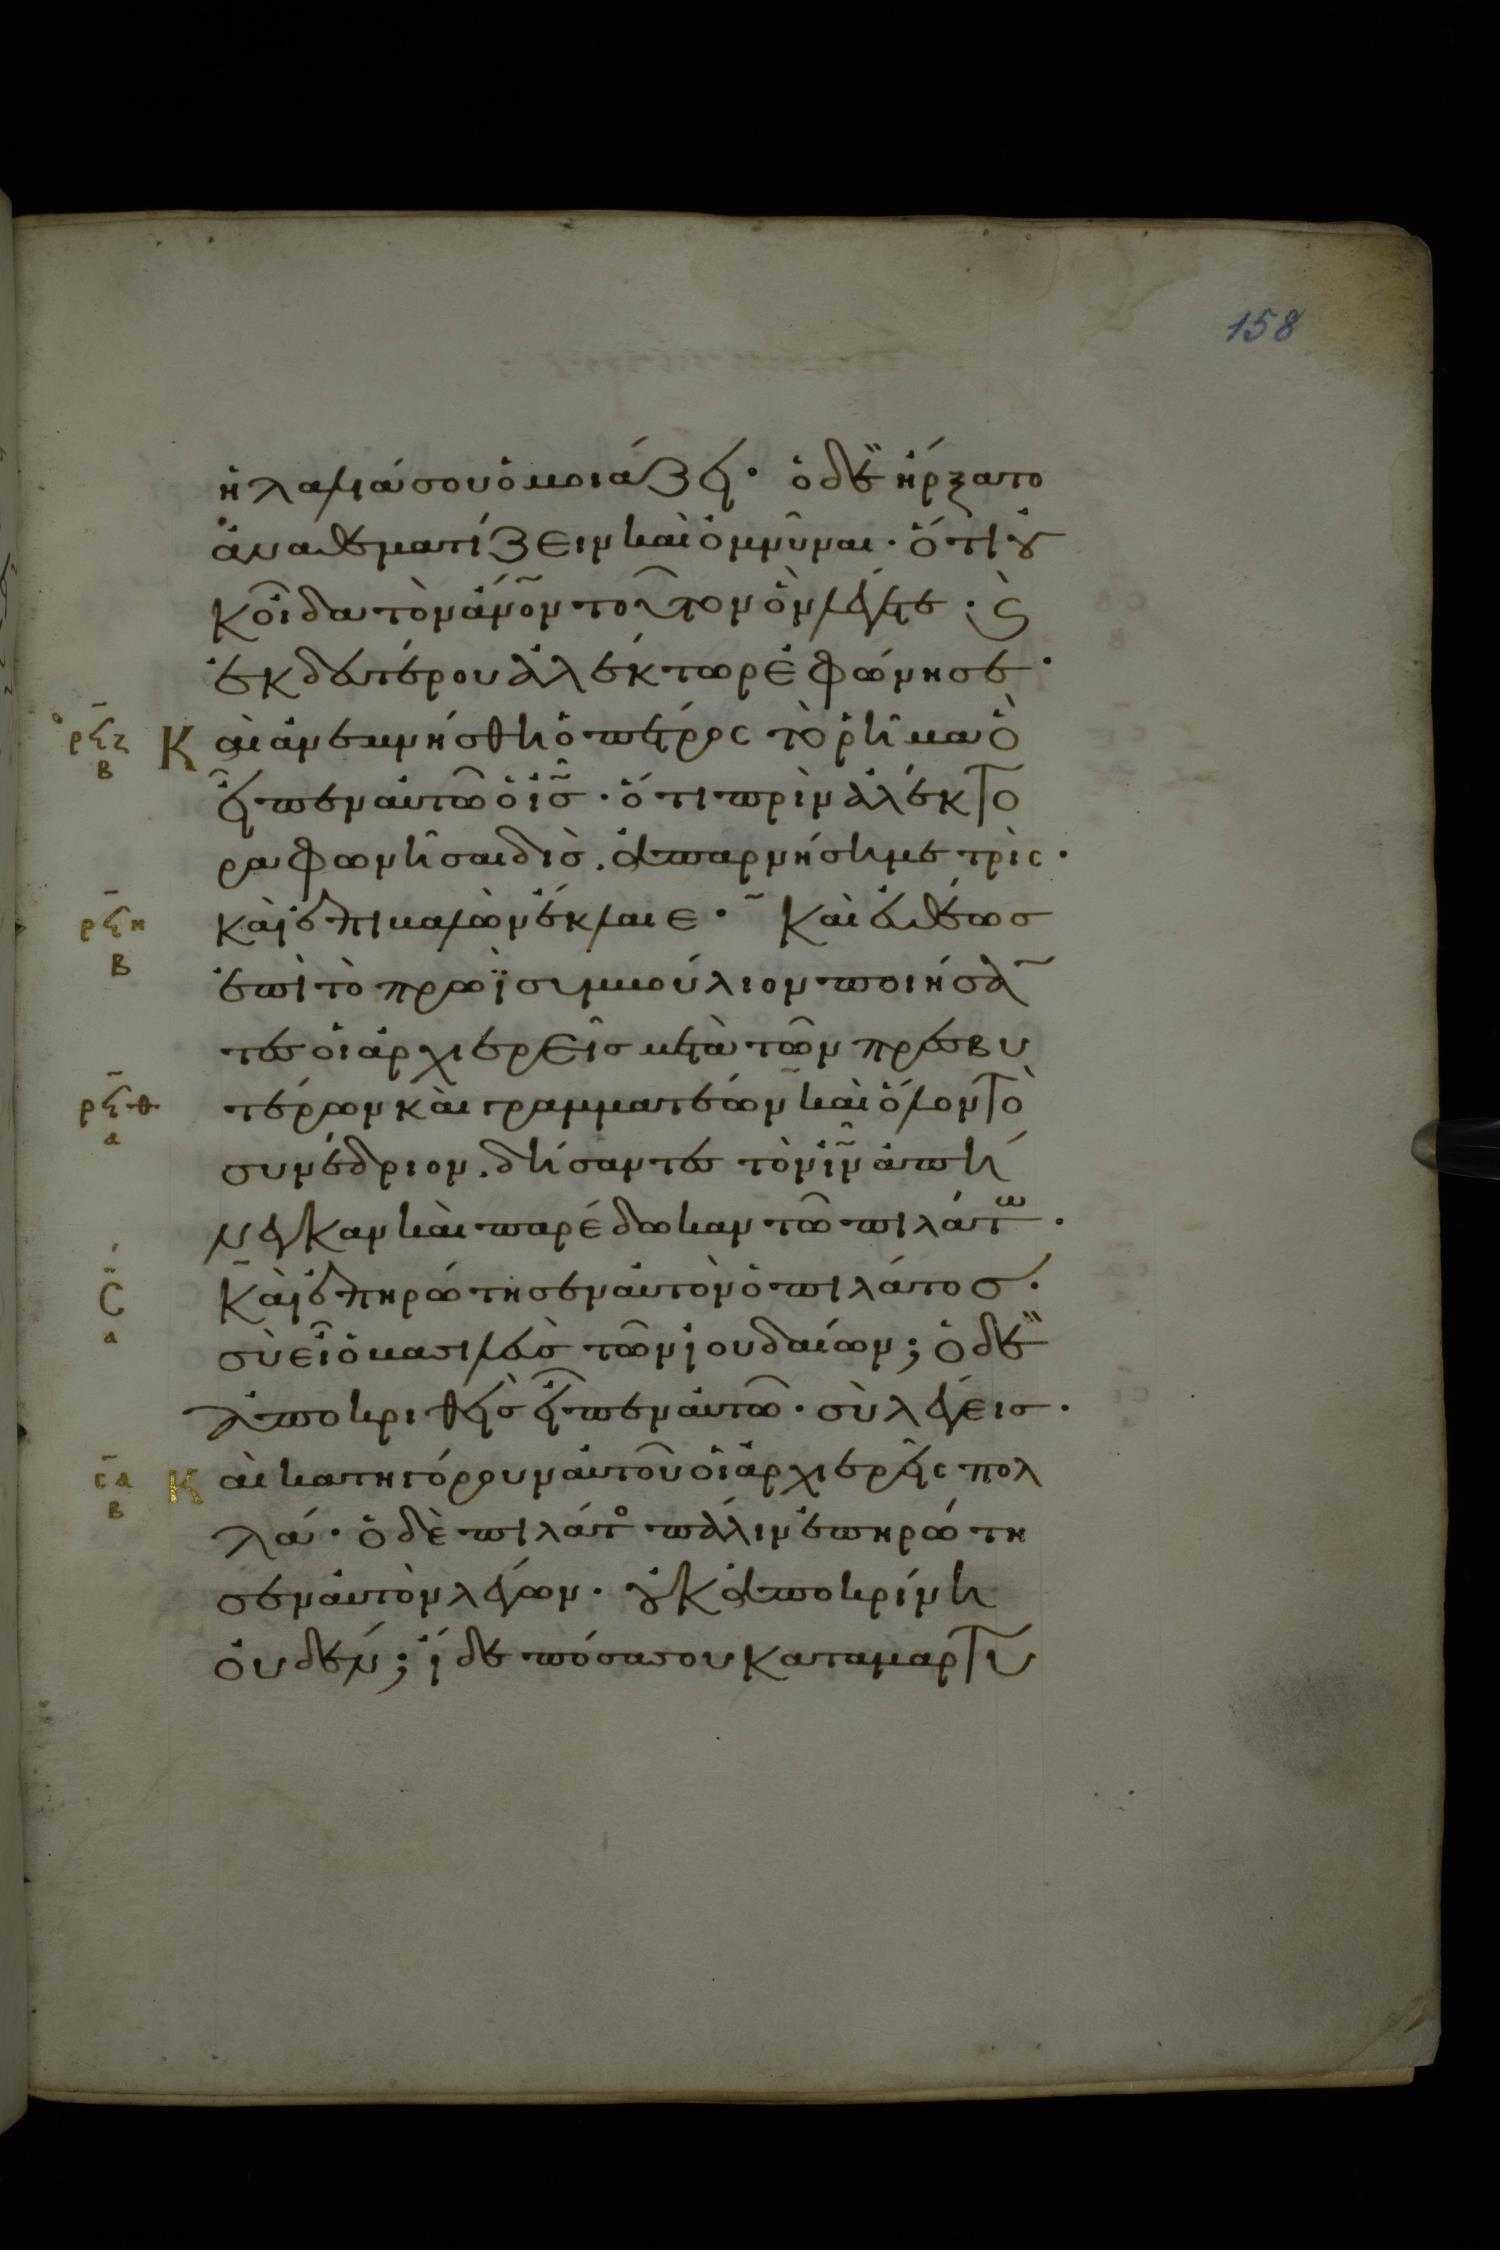 158
ἡ λαλιά σου ὁμοιάζει· ὁ δὲ ἤρξατο
ἀναθεματίζειν καὶ ὀμνῦναι· ὅτι οὐ
κ οἶδα τὸν ἄνον τοῦτον ὃν λέγετε· ϛ
ἐκ δευτέρου ἀλέκτωρ ἐφώνησε·
ρϟζ β Καὶ ἀνεμνήσθη ὁ πέτρος τὸ ῥῆμα ὃ
εἶπεν αὐτῶ ὁ ις· ὅτι πρὶν ἀλέκτο
ρα φωνῆσαι δὶς. ἀπαρνήση με τρὶς·
ρϟη β καὶ ἐπιβαλὼν ἔκλαιε· Καὶ εὐθέως
ἐπὶ τὸ πρωῒ συμβούλιον ποιήσαν
τες οἱ ἀρχιερεῖς μετὰ τῶν πρεσβυ
ρϟθ α τέρων καὶ γραμματέων καὶ ὅλον τὸ
συνέδριον. δήσαντες τὸν ιν ἀπή
νεγκαν καὶ παρέδωκαν τῶ πιλάτω·
ς α Καὶ ἐπηρώτησεν αὐτὸν ὁ πιλάτος·
σὺ εἶ ὁ βασιλεὺς τῶν ἰουδαίων; ὁ δὲ
ἀποκριθεὶς εἶπεν αὐτῶ· σὺ λέγεις·
ςα β Καὶ κατηγόρουν αὐτοῦ οἱ ἀρχιερεῖς πολ
λά· ὁ δὲ πιλάτος πάλιν ἐπηρώτη
σεν αὐτὸν λέγων· οὐκ ἀποκρίνη
οὐδέν; ἴδε πόσα σου καταμαρτυ